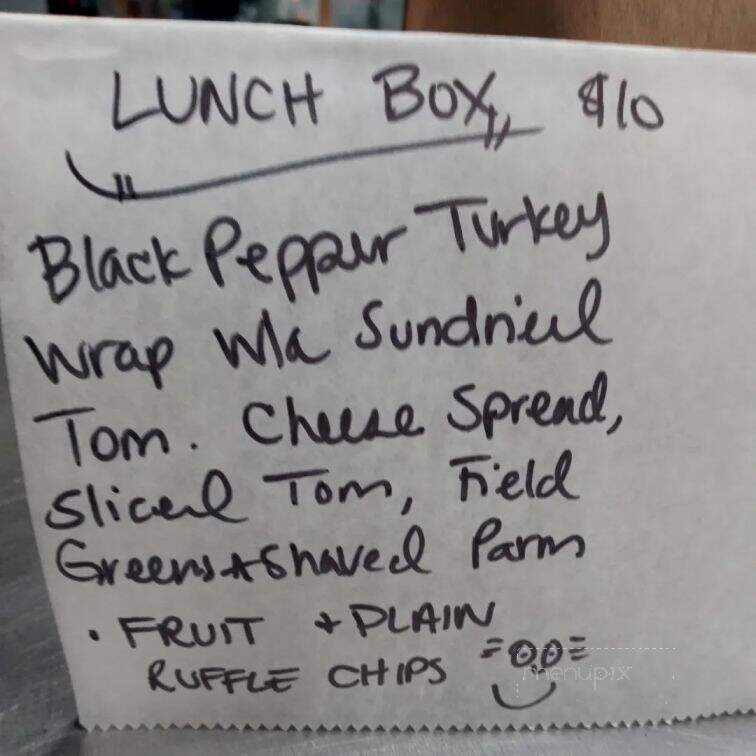 LUNCH BOX $10
Black Pepper Turkey
Wrap w/a Sundried
Tom. Cheese Spread,
Sliced Tom, Field
Greens + Shaved Parm
• FRUIT + PLAIN
RUFFLE CHIPS
menupix